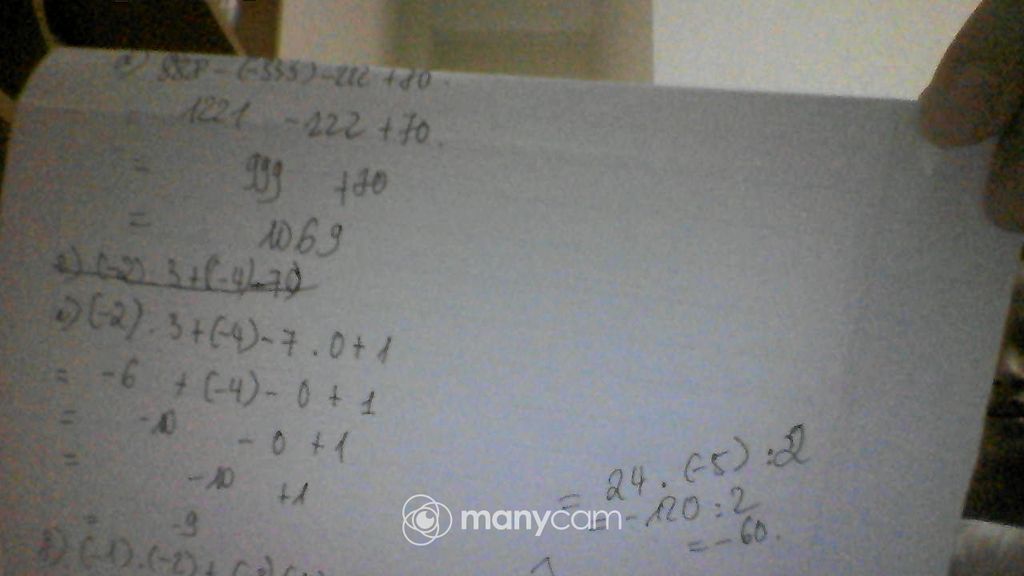 - 222 + 70.
1221 - 222 + 70.
= 999 + 70
= 1069
(-2) . 3 + (-4) - 70
(-2) . 3 + (-4) - 7 . 0 + 1
= -6 + (-4) - 0 + 1
= -10 - 0 + 1
= -10 + 1
= -9
(-1) . (-2) +
= 24 . (-5) : 2
= -120 : 2
= -60.
manycam